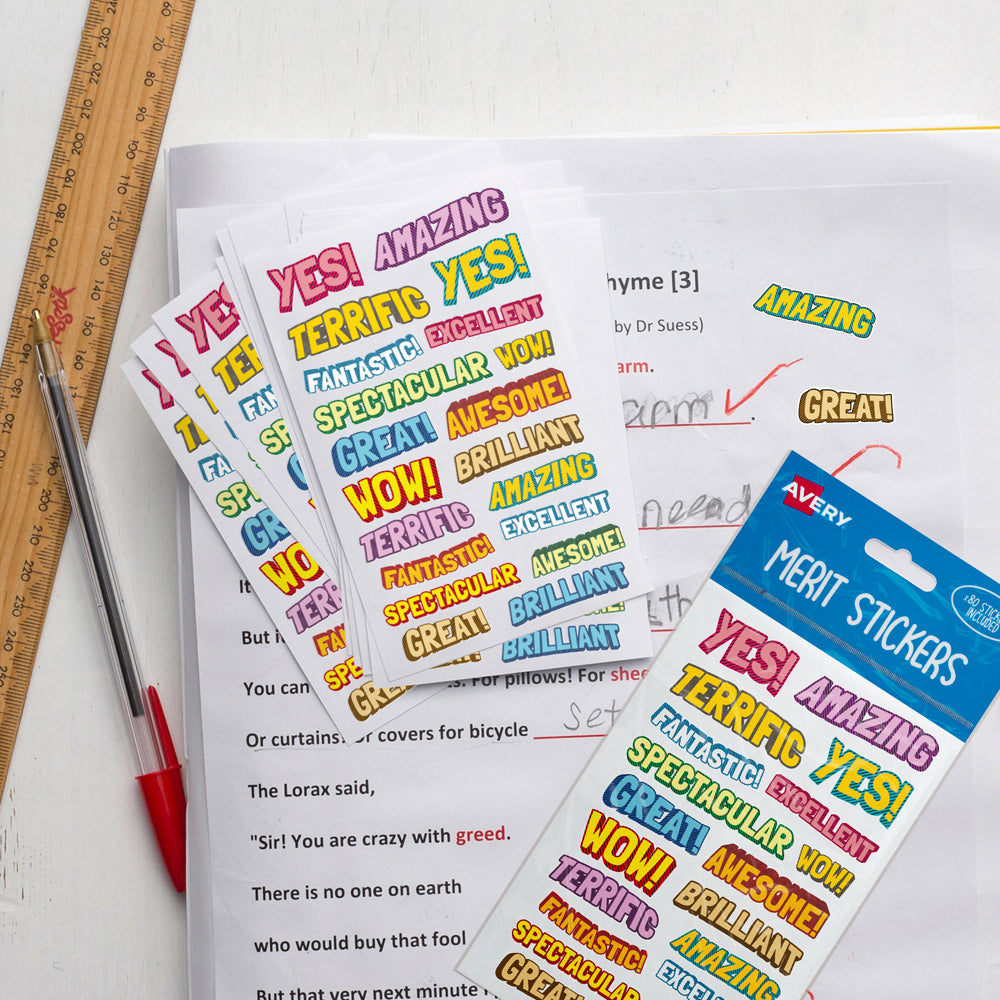 YES! AMAZING
TERRIFIC YES!
FANTASTIC! EXCELLENT
SPECTACULAR WOW!
GREAT! AWESOME!
WOW! BRILLIANT
TERRIFIC AMAZING
FANTASTIC! EXCELLENT
SPECTACULAR AWESOME!
GREAT! BRILLIANT
BRILLIANT
hyme [3]
by Dr Suess)
arm.
arm
AMAZING
GREAT!
need
You can
For pillows! For
Or curtains! Or covers for bicycle set
The Lorax said,
"Sir! You are crazy with greed.
There is no one on earth
who would buy that fool
But that very next minute
AVERY
MERIT STICKERS
x80 STICKERS
INCLUDED
YES! AMAZING
TERRIFIC YES!
FANTASTIC! EXCELLENT
SPECTACULAR WOW!
GREAT! AWESOME!
WOW! BRILLIANT
TERRIFIC AMAZING
FANTASTIC!
SPECTACULAR
GREAT!